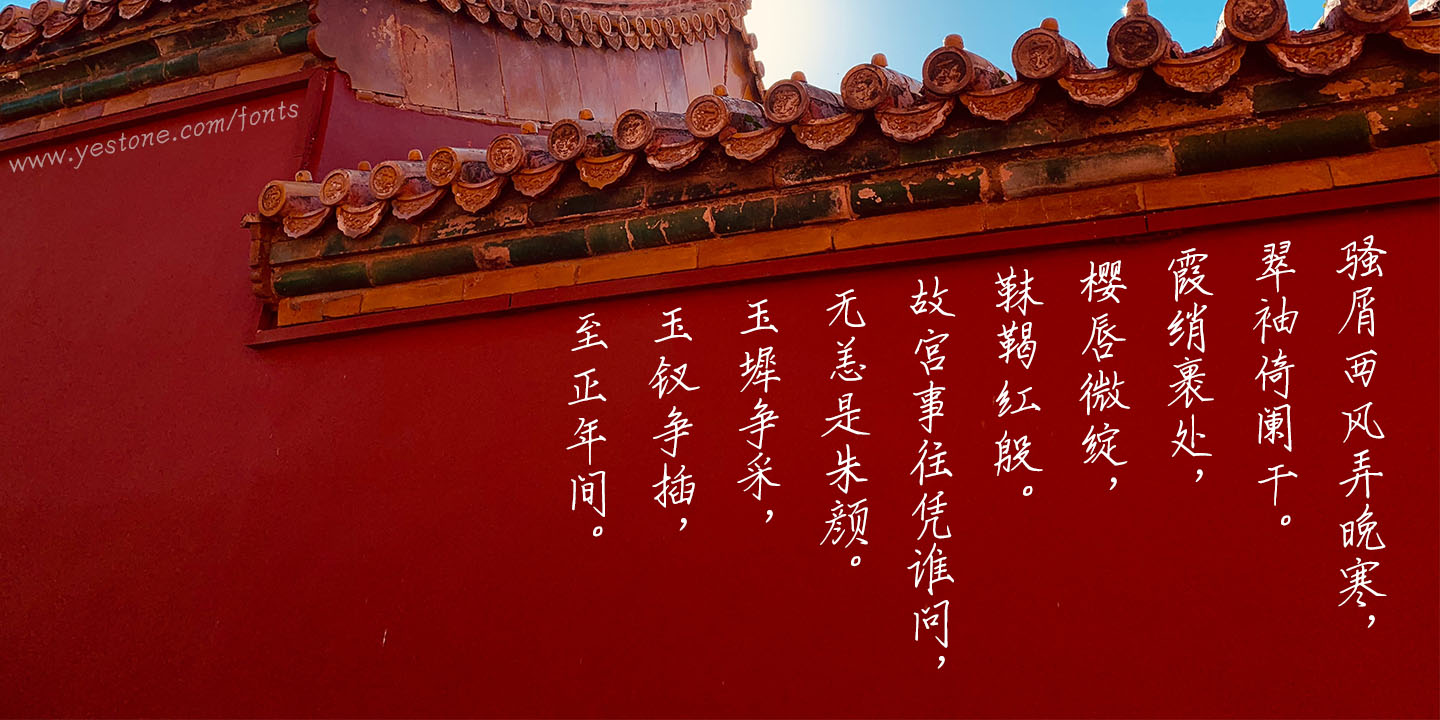 www.yestone.com/fonts
骚屑西风弄晚寒，
翠袖倚阑干。
霞绡裹处，
樱唇微绽，
靺鞨红殷。
故宫事往凭谁问，
无恙是朱颜。
玉墀争采，
玉钗争插，
至正年间。